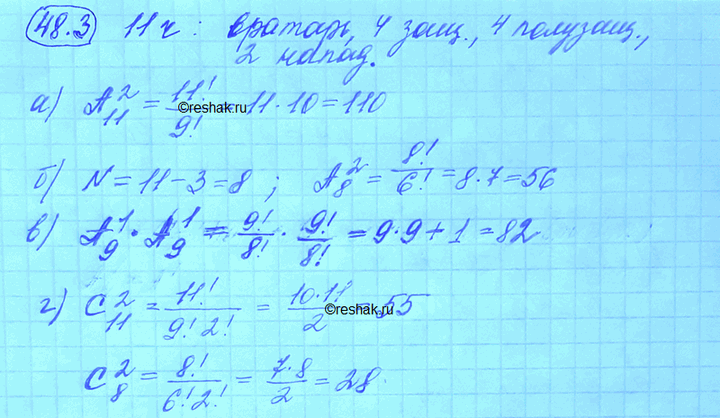 48.3 11 ч : вратарь, 4 защ., 4 полузащ.,
2 напад.
а) A₁₁² = 11!/9! = 11·10=110
©reshak.ru
б) N = 11-3=8 ; A₈² = 8!/6! = 8·7=56
в) A₉¹ · A₉¹ = 9!/8! · 9!/8! = 9·9+1=82
г) C₁₁² = 11!/(9! 2!) = (10·11)/2 = 55
©reshak.ru
C₈² = 8!/(6! 2!) = (7·8)/2 = 28.